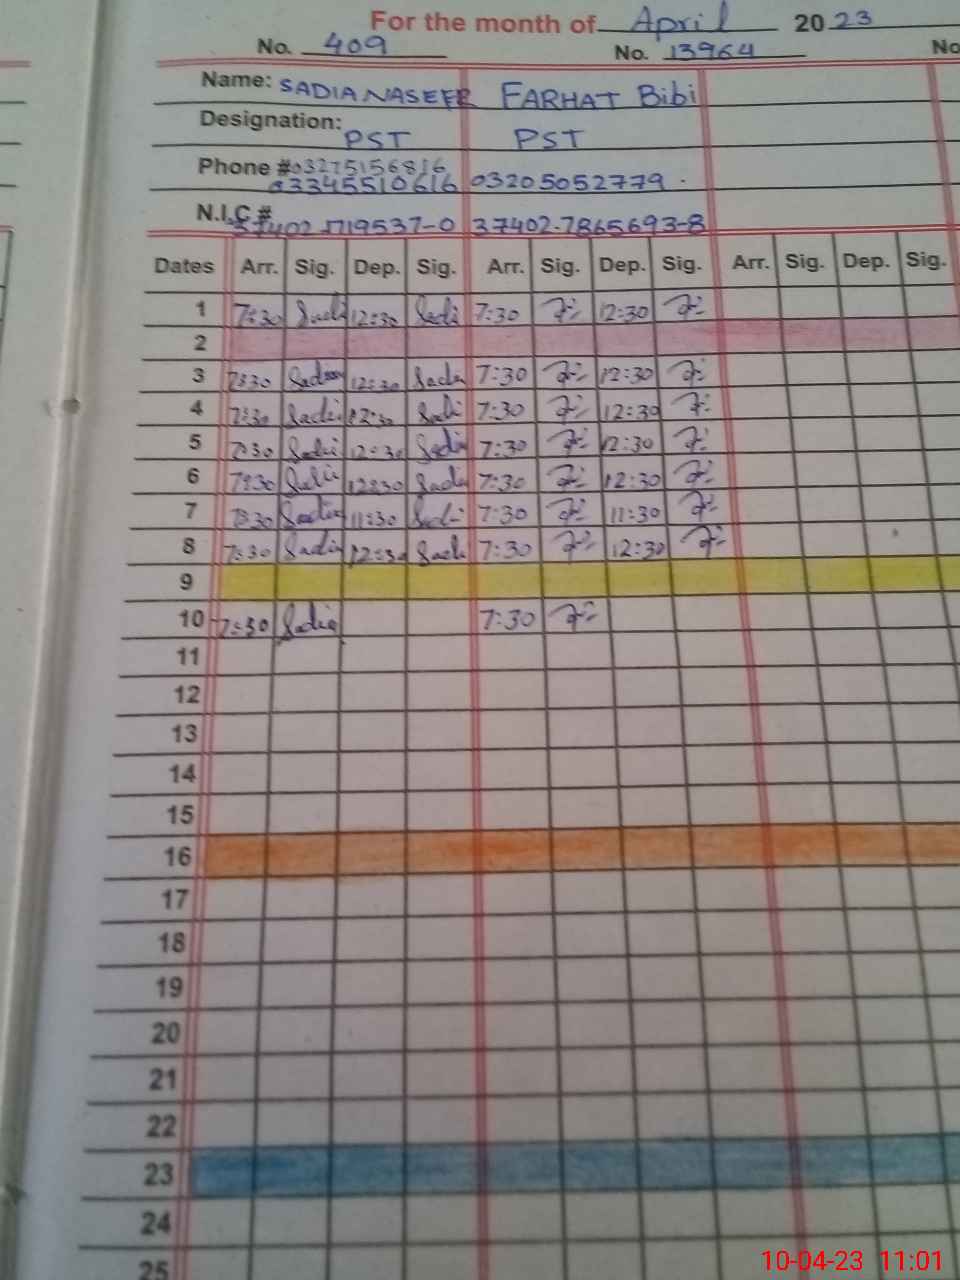 For the month of April 2023
No. 409 No. 13964 No
Name: SADIA NASEER FARHAT Bibi
Designation: PST PST
Phone # 03275156816
03345510616 03205052779
N.I.C # 37402 1719537-0 37402-7865693-8
Dates Arr. Sig. Dep. Sig. Arr. Sig. Dep. Sig. Arr. Sig. Dep. Sig.
1 7:30 Sadi 12:30 Sadi 7:30 12:30
2
3 7:30 Sadia 12:30 Sadia 7:30 12:30
4 7:30 Sadi 12:30 Sadi 7:30 12:30
5 7:30 Sadi 12:30 Sadi 7:30 12:30
6 7:30 Sadi 12:30 Sadi 7:30 12:30
7 7:30 Sadia 11:30 Sadi 7:30 11:30
8 7:30 Sadia 12:30 Sadi 7:30 12:30
9
10 7:30 Sadia 7:30
11
12
13
14
15
16
17
18
19
20
21
22
23
24
25
10-04-23 11:01